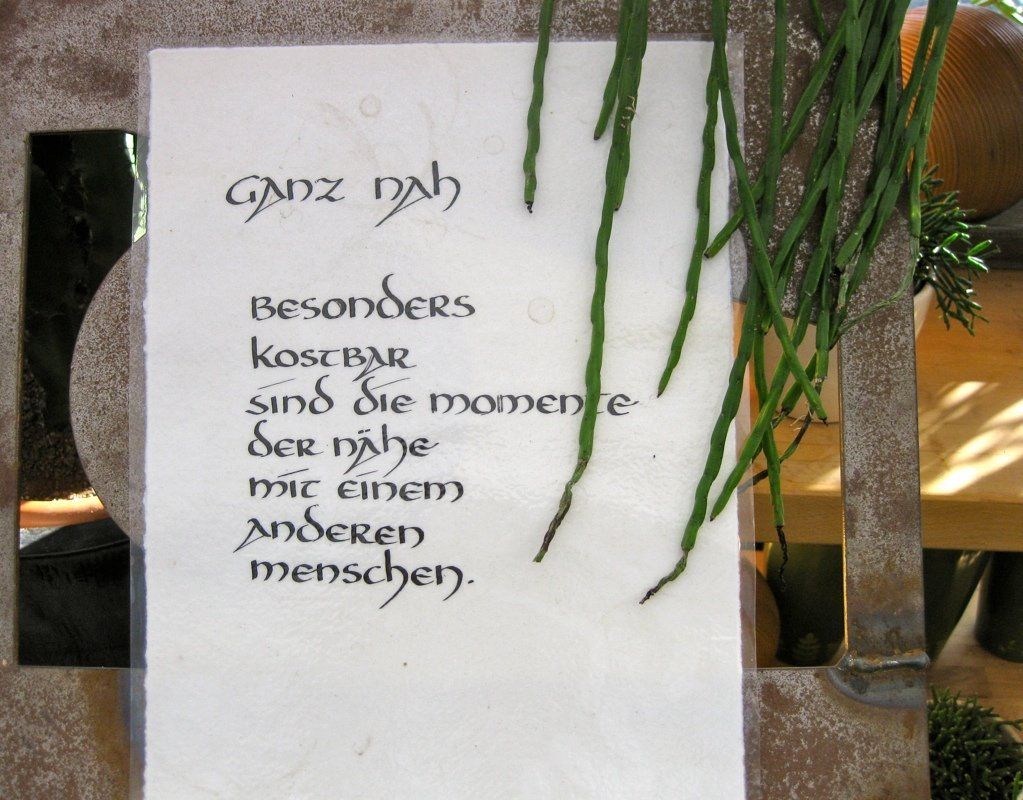 Ganz nah
Besonders
kostbar
sind die Momente
der Nähe
mit einem
anderen
Menschen.